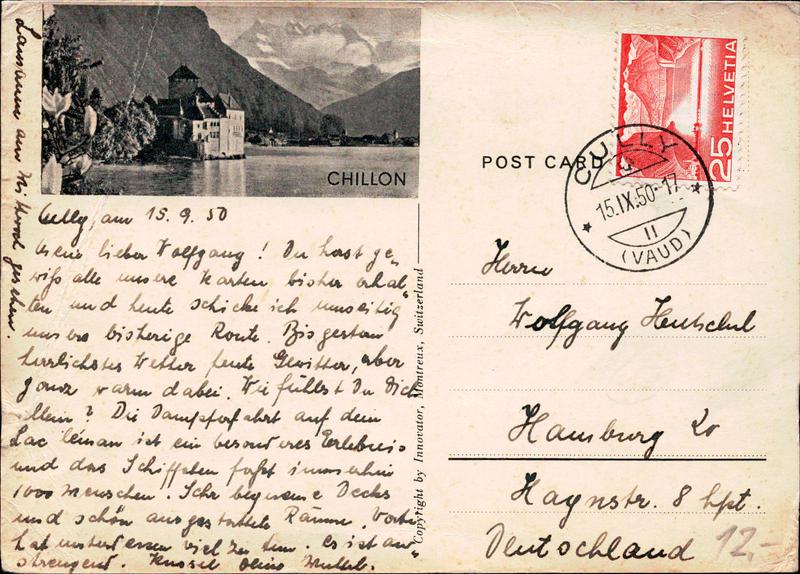 CHILLON
Cully, am 15.9.50
Mein lieber Wolfgang! Du hast ge-
wiß alle unsere Karten bisher erhal-
ten und heute schicke ich umseitig
unsere bisherige Route. Bis gestern
herrlichstes Wetter heute Gewitter, aber
ganz warm dabei. Wie fühlst Du Dich
allein? Die Dampferfahrt auf dem
Lac leman ist ein besonderes Erlebnis
und das Schiff faßt immerhin
1000 Menschen. Sehr bequeme Decks
und schön ausgestattete Räume. Vater
hat unterdessen viel zu tun. Es ist an-
strengend. Kussel Deine Mutti.
Lausanne am Mittwoch gesehen.
Copyright by Innovator, Montreux, Switzerland
POST CARD
25 HELVETIA
CULLY
15.IX.50-17
11
(VAUD)
Herrn
Wolfgang Hentschel
Hamburg 20
Haynstr. 8 hpt.
Deutschland
12,-